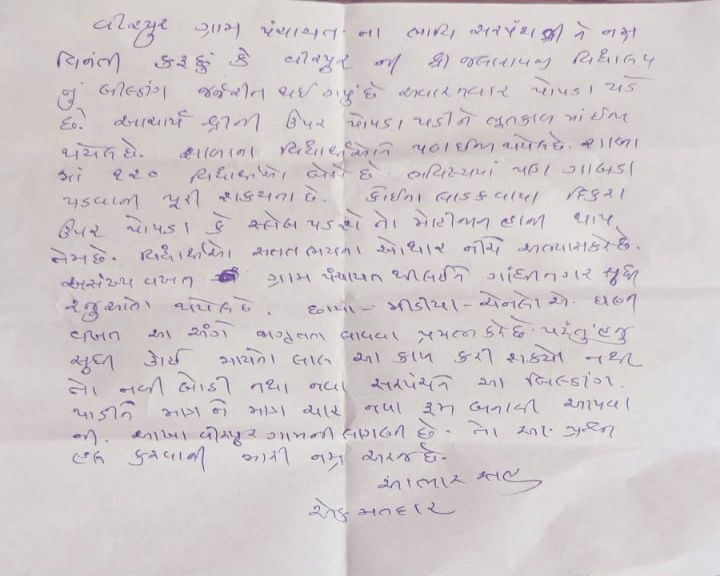 વીરપુર ગ્રામ પંચાયત ના ભાવિ સરપંચશ્રી ને નમ્ર
વિનંતી કરૂછું કે વીરપુર ની શ્રી જલારામજી વિદ્યાલય
નું બીલ્ડીંગ જર્જરીત થઈ ગયું છે અવારનવાર પોપડા પડે
છે. આચાર્ય શ્રીની ઉપર પોપડા પડીને ભૂતકાળ માં ઈજા
થયેલ છે. શાળાના વિદ્યાર્થીઓને પણ ઈજા થયેલ છે. શાળા
માં ૬૨૦ વિદ્યાર્થીઓ બેસે છે. ભવિષ્યમાં પણ ગાબડા
પડવાની પૂરી શક્યતા છે. કોઈના લાડકવાયા દિકરા
ઉપર પોપડા કે સ્લેબ પડશે તો મોટી જાન હાની થાય
તેમ છે. વિદ્યાર્થીઓ સતત ભયના ઓથાર નીચે અભ્યાસ કરે છે.
અસંખ્ય વખત ગ્રામ પંચાયત થી લઈને ગાંધીનગર સુધી
રજુઆતો થયેલ છે. છાપા - મીડીયા - ચેનલો એ ઘણી
વખત આ અંગે જાગૃતતા લાવવા પ્રયત્ન કરે છે. પરંતુ હજુ
સુધી કોઈ માયનો લાલ આ કામ કરી શક્યો નથી
તો નવી બોડી તથા નવા સરપંચને આ બિલ્ડીંગ.
પાડીને માત્ર ને માત્ર ચાર નવા રૂમ બનાવી આપવા
ની. આખા વીરપુર ગામની લાગણી છે. તો આ પ્રશ્ન
હલ કરવાની મારી નમ્ર અરજ છે.
આભાર સહ
એક મતદાર